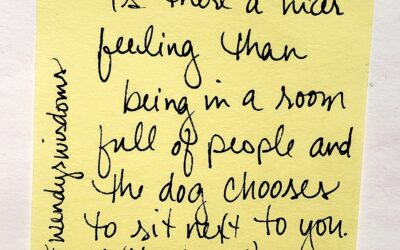 Is there a nicer
feeling than
being in a room
full of people and
the dog chooses
to sit next to you.
#wendyswisdoms